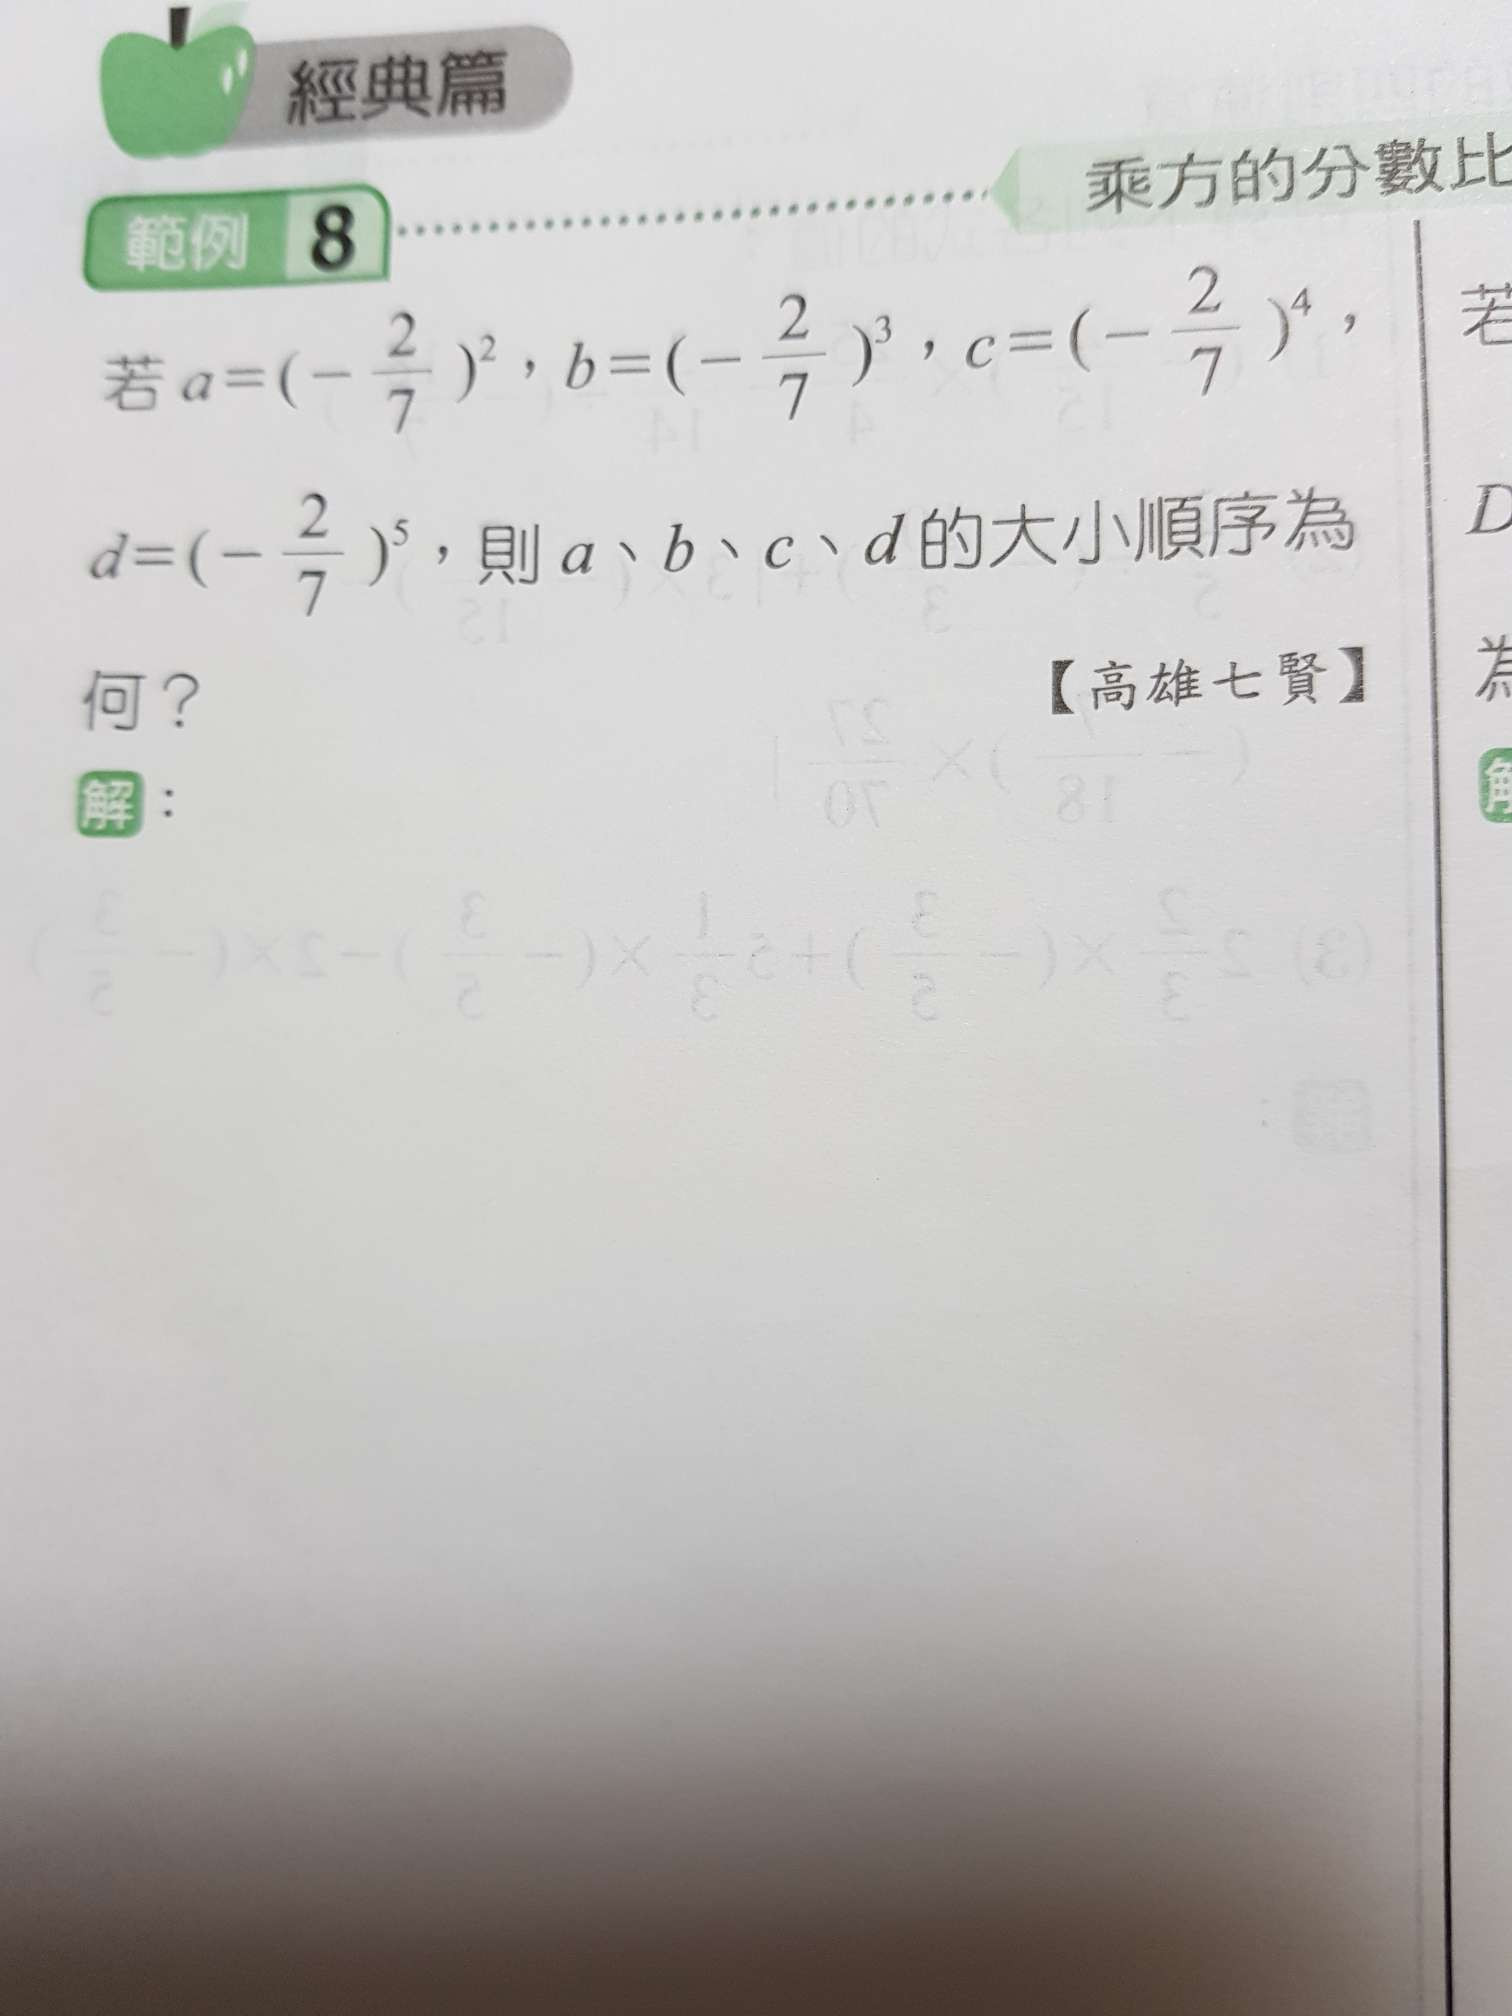 經典篇
範例 8 乘方的分數比
若 a=(-2/7)²,b=(-2/7)³,c=(-2/7)⁴,
d=(-2/7)⁵,則 a、b、c、d 的大小順序為
何?
【高雄七賢】
解:
若
D
為
解